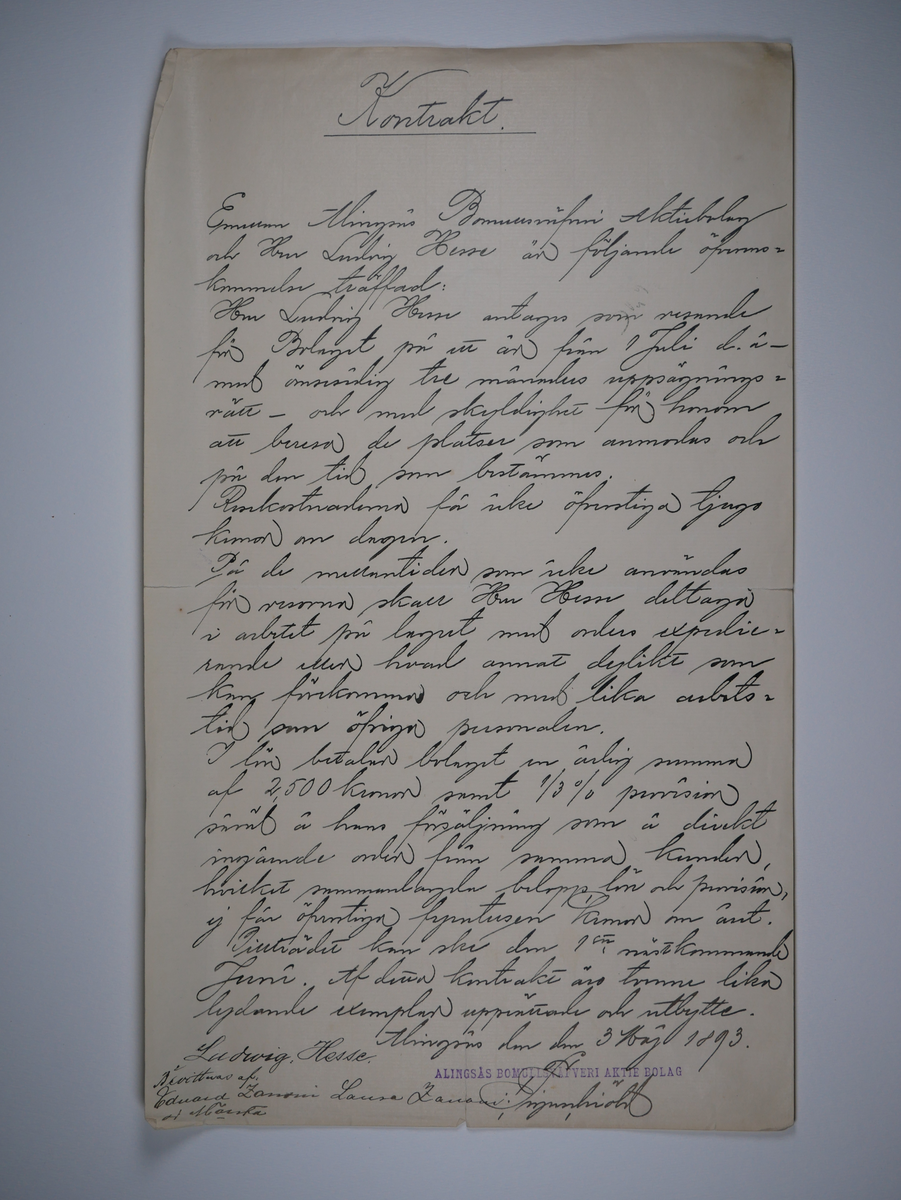 Kontrakt.
Emellan Alingsås Bomullsväfveri Aktiebolag
och Herr Ludvig Hesse är följande öfverens=
kommelse träffad:
Herr Ludvig Hesse antages som resande
för Bolaget på ett år från 1 Juli d. å –
med ömsesidig tre månaders uppsägnings=
rätt – och med skyldighet för honom
att beresa de platser som anmodas och
på den tid som bestämmes.
Resekostnaderna få icke öfverstiga tjugo
kronor om dagen.
På de mellantider som icke användas
för resorna skall Herr Hesse deltaga
i arbetet på lagret med orders expedie=
rande eller hvad annat dylikt som
kan förekomma och med lika arbets=
tid som öfriga personalen.
I lön betalar bolaget en årlig summa
af 2,500 kronor samt 1/3 % provision
såväl å hans försäljning som å direkt
ingående order från samma kunder,
hvilket sammanlagda belopp, lön och provision,
ej får öfverstiga fyratusen kronor om året.
Tillträdet kan ske den 1sta nästkommande
Juni. Af detta kontrakt äro tvenne lika
lydande exemplar upprättade och utbytte.
Alingsås den den 3 Maj 1893.
Ludwig Hesse.
ALINGSÅS BOMULLSVÄFVERI AKTIE BOLAG
Bevittnas af:
Eduard Zanoni Laura Zanoni.